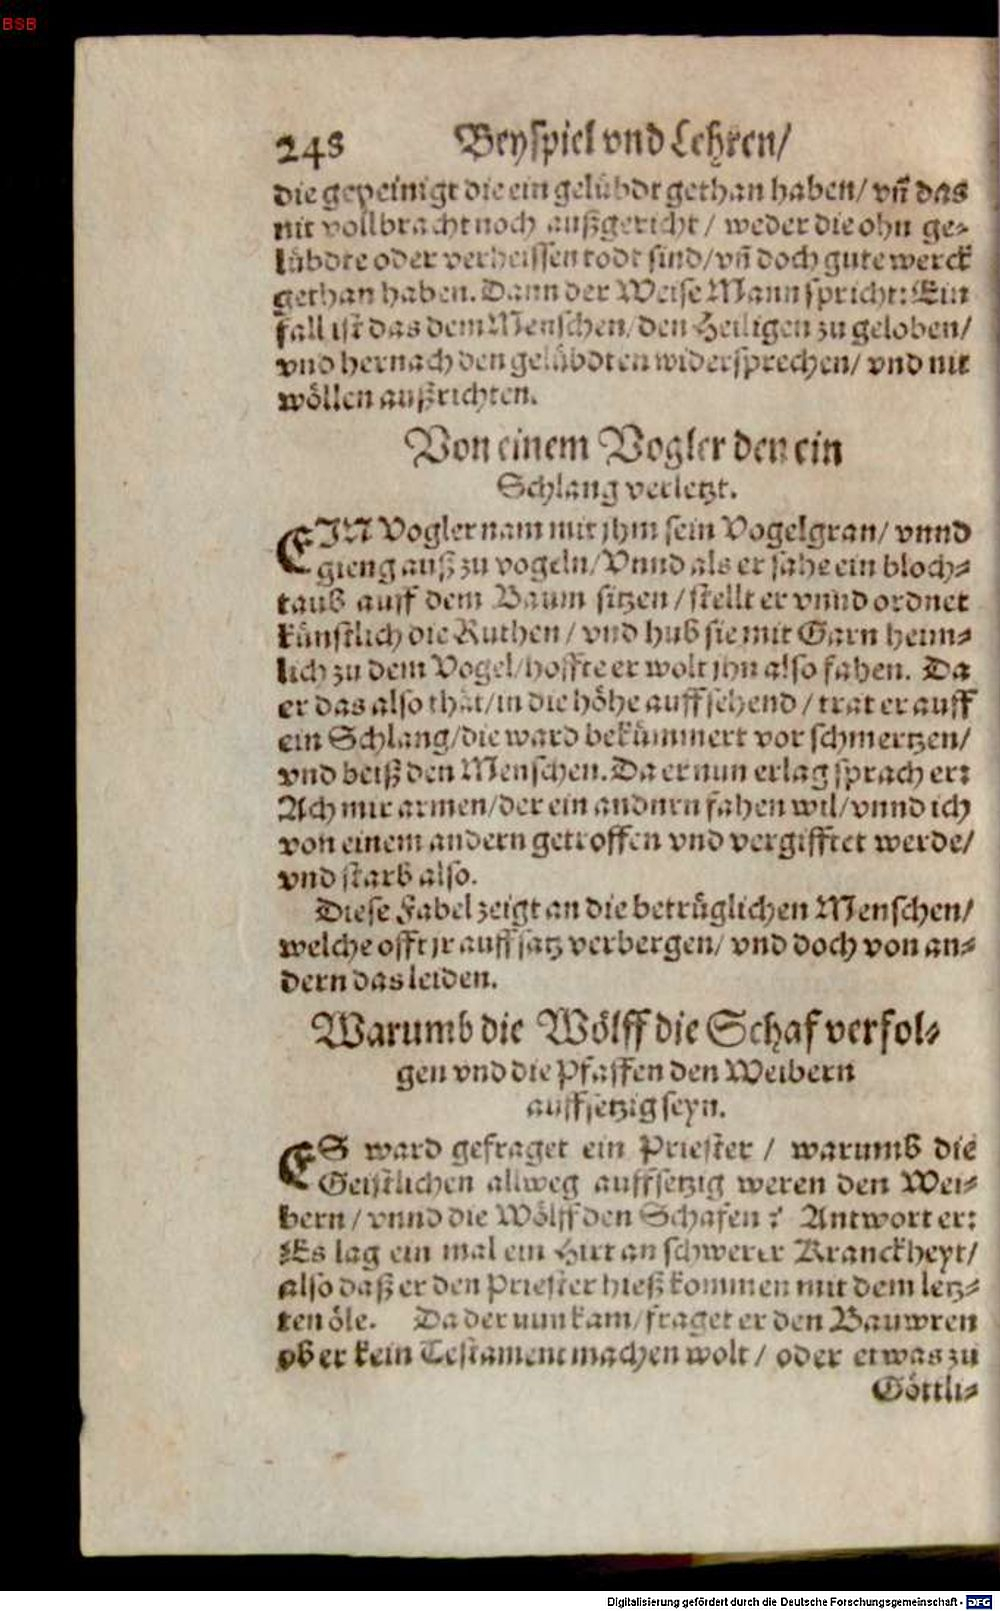 BSB
248 Beyspiel vnd Lehren/
die gepeinigt die ein gelübdt gethan haben/ vñ das
nit vollbracht noch außgericht/ weder die ohn ge-
lübdte oder verheissen todt sind/ vñ doch gute werck
gethan haben. Dann der Weise Mann spricht: Ein
fall ist das dem Menschen/ den Heiligen zu geloben/
vnd hernach den gelübdten widersprechen/ vnd nit
wöllen außrichten.
Von einem Vogler den ein
Schlang verletzt.
EIN Vogler nam mit jhm sein Vogelgran/ vnnd
gieng auß zu vogeln/ Vnnd als er sahe ein bloch-
taub auff dem Baum sitzen/ stellt er vnnd ordnet
künstlich die Ruthen/ vnd hub sie mit Garn heim-
lich zu dem Vogel/ hoffte er wolt jhn also fahen. Da
er das also thät/ in die höhe auff sehend/ trat er auff
ein Schlang/ die ward bekümmert vor schmertzen/
vnd beiß den Menschen. Da er nun erlag sprach er:
Ach mir armen/ der ein andnrn fahen wil/ vnnd ich
von einem andern getroffen vnd vergifftet werde/
vnd starb also.
Diese Fabel zeigt an die betrüglichen Menschen/
welche offt jr auffsatz verbergen/ vnd doch von an-
dern das leiden.
Warumb die Wölff die Schaf verfol-
gen vnd die Pfaffen den Weibern
auffsetzig seyn.
ES ward gefraget ein Priester/ warumb die
Geistlichen allweg auffsetzig weren den Wei-
bern/ vnnd die Wölff den Schafen? Antwort er:
Es lag ein mal ein Hirt an schwerer Kranckheyt/
also daß er den Priester hieß kommen mit dem letz-
ten öle. Da der nun kam/ fraget er den Bauwren
ob er kein Testament machen wolt/ oder etwas zu
Göttli-
Digitalisierung gefördert durch die Deutsche Forschungsgemeinschaft - DFG